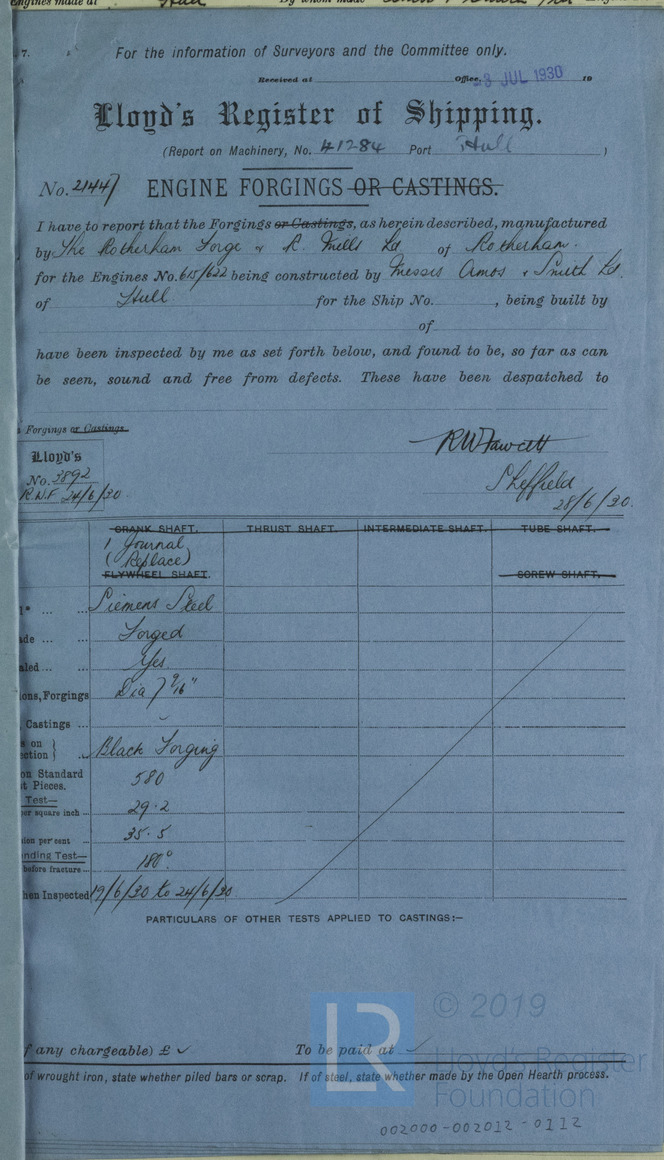 Engines made at Hull By whom made
7.
For the information of Surveyors and the Committee only.
Received at Office 3 JUL 1930 19
Lloyd's Register of Shipping.
(Report on Machinery, No. 41284 Port Hull )
No. 21447 ENGINE FORGINGS OR CASTINGS.
I have to report that the Forgings or Castings, as herein described, manufactured
by The Rotherham Forge & R. Mills Ld of Rotherham.
for the Engines No. 615/622 being constructed by Messrs Amos & Smith Ld.
of Hull for the Ship No. , being built by
of
have been inspected by me as set forth below, and found to be, so far as can
be seen, sound and free from defects. These have been despatched to
Forgings or Castings
RW Fawcett
Lloyd's
No. 3892
R.W.F 24/6/30
Sheffield
28/6/30.
CRANK SHAFT. THRUST SHAFT. INTERMEDIATE SHAFT. TUBE SHAFT.
1 Journal
(Replace)
FLYWHEEL SHAFT. SCREW SHAFT.
Siemens Steel
ade ... ... Forged
aled ... ... Yes.
ons, Forgings Dia 7 9/16"
Castings ... -
s on
ection } ... Black Forging
on Standard
t Pieces. 580
Test—
per square inch ... 29.2
ion per cent ... 35.5
nding Test—
before fracture ... 180°
hen Inspected 19/6/30 to 24/6/30
PARTICULARS OF OTHER TESTS APPLIED TO CASTINGS:—
f any chargeable) £ ✓ To be paid at ✓
of wrought iron, state whether piled bars or scrap. If of steel, state whether made by the Open Hearth process.
LR
© 2019
Lloyd's Register
Foundation
002000-002012-0112